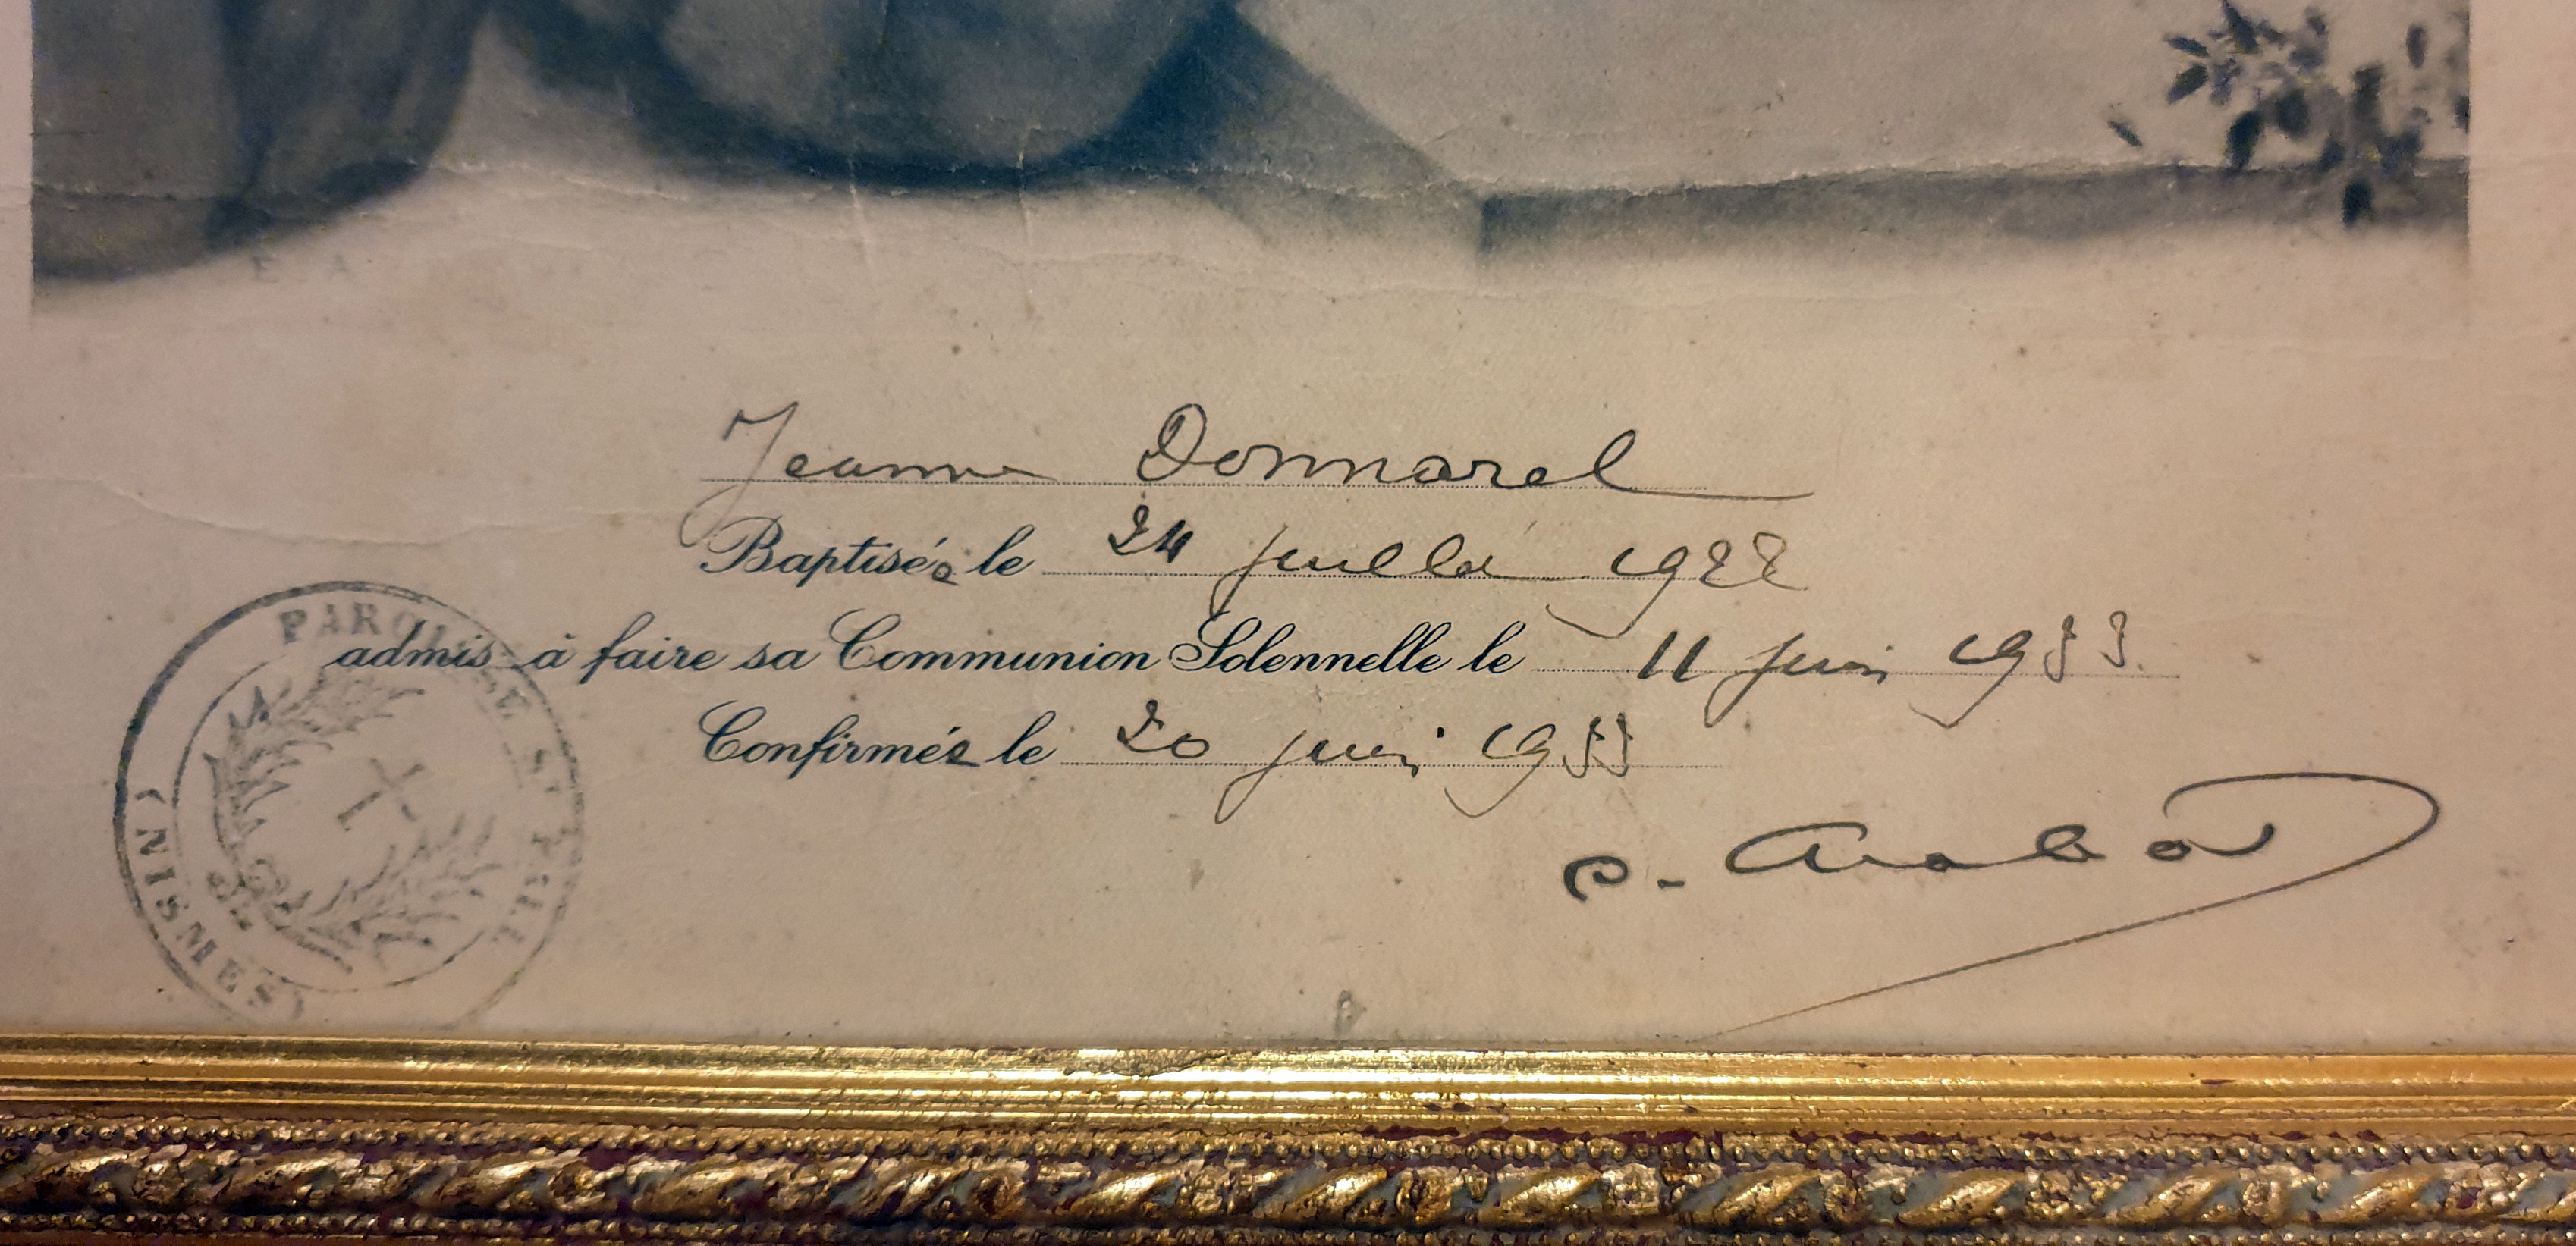 Jeanne Donnarel
Baptisée le 24 juillet 1922
admis à faire sa Communion Solennelle le 11 juin 1933
Confirmée le 20 juin 1933
PAROISSE ST
(NISMES)